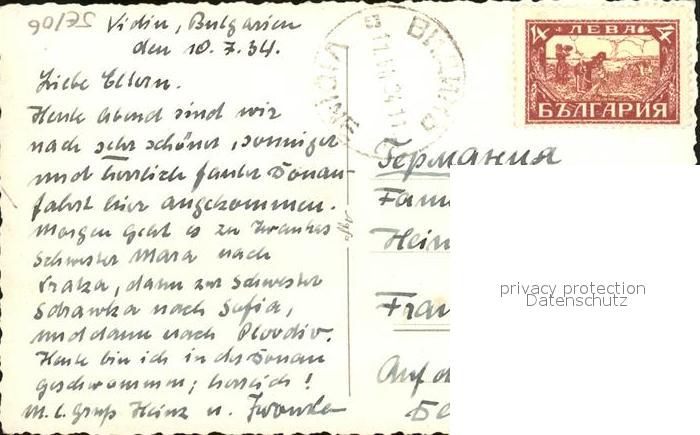 Vidin, Bulgarien
den 10.7.34.
Liebe Eltern.
Heute Abend sind wir
nach sehr schöner, sonniger
und herrlich fauler Donau-
fahrt hier angekommen.
Morgen geht es zu
Schwester Mara nach
Vratza, dann zur Schwester
Sdrawka nach Sofia,
und dann nach Plovdiv.
Heute bin ich in der Donau
geschwommen; herrlich!
M. l. Gruß Heinz u.
4 ЛЕВА 4
БЪЛГАРИЯ
ВИДИНЪ
VIDINE
Германия
Fam
Hein
Fran
Auf d
privacy protection
Datenschutz